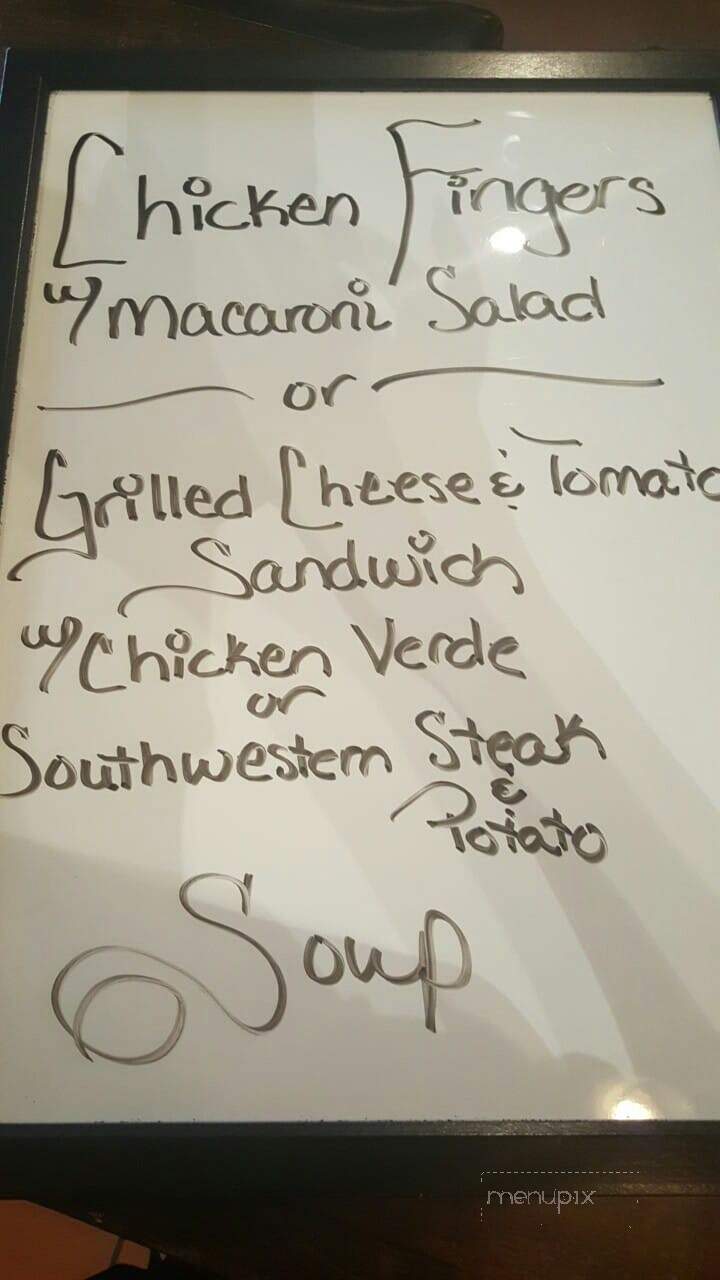 Chicken Fingers
w/ Macaroni Salad
or
Grilled Cheese & Tomato
Sandwich
w/ Chicken Verde
or
Southwestern Steak
&
Potato
Soup
menupix